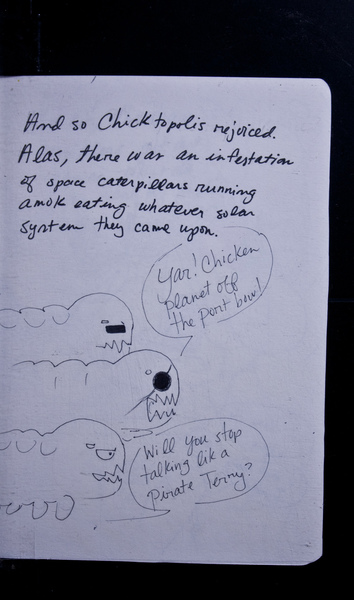 And so Chicktopolis rejoiced.
Alas, there was an infestation
of space caterpillars running
amok eating whatever solar
system they came upon.
Yar! Chicken
planet off
the port bow!
Will you stop
talking like a
Pirate Terry?